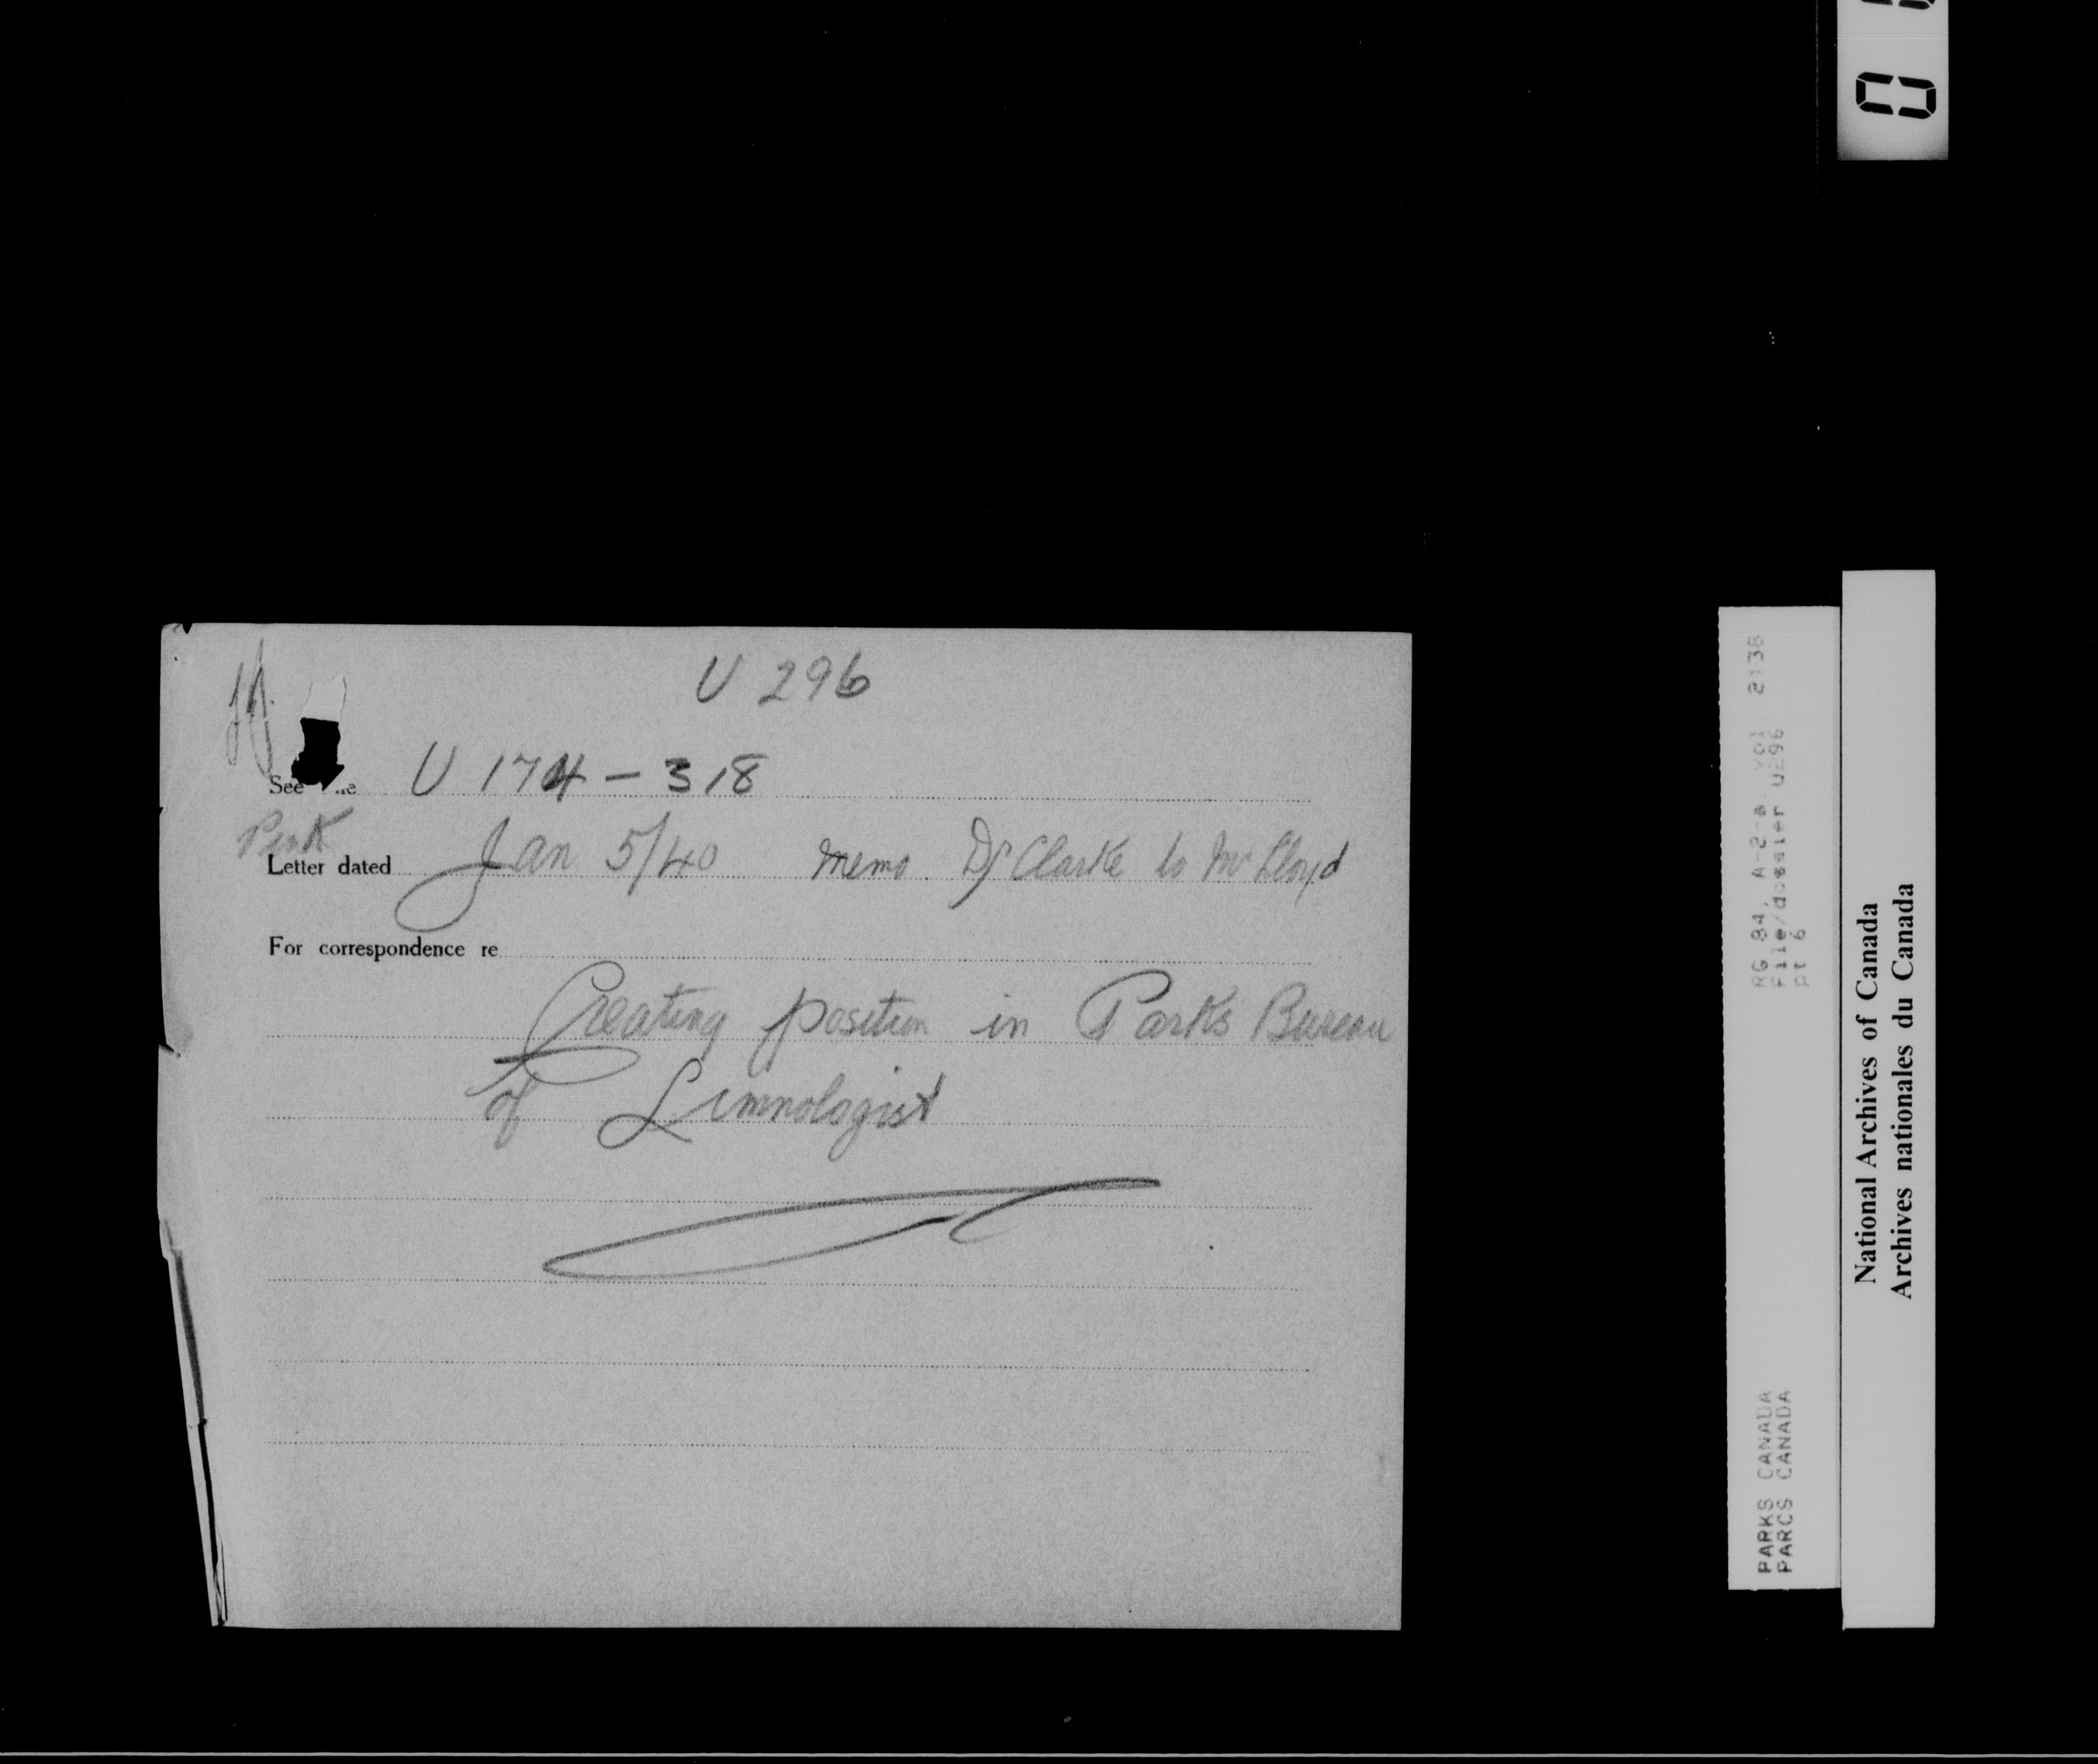 U 296
See U 174 - 318
Letter dated Jan 5/40 memo. Dr Clarke to Mr Lloyd
For correspondence re
Creating position in Parks Bureau
of Limnologist
RG 84, A-2-a vol 2138
File/dossier U296
pt 6
PARKS CANADA
PARCS CANADA
National Archives of Canada
Archives nationales du Canada